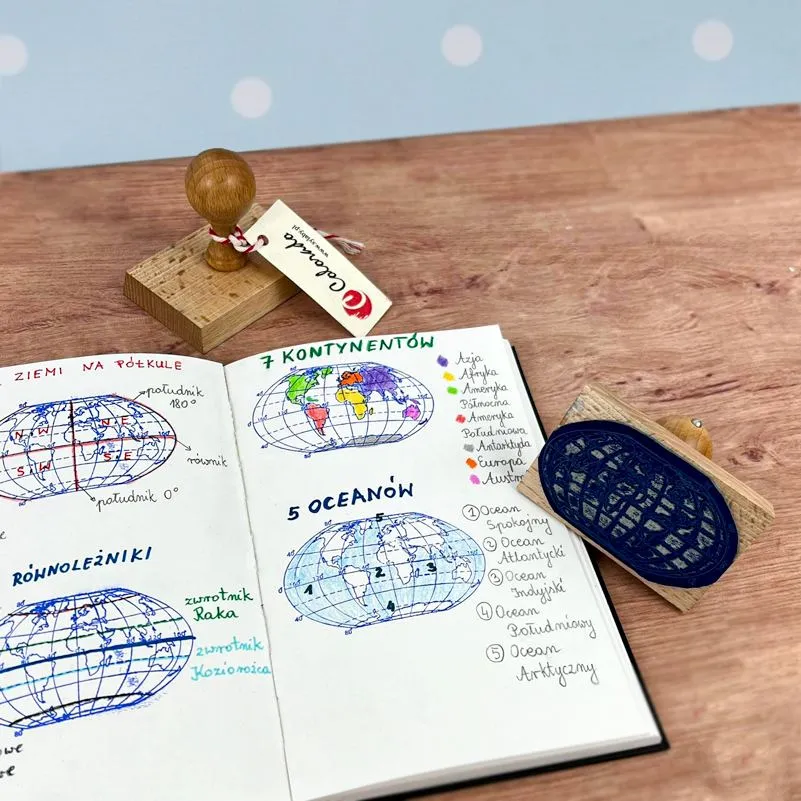 Colorada
www.sylaby.pl
ZIEMI NA PÓŁKULE
południk
180°
N W
N E
S W
S E
równik
południk 0°
RÓWNOLEŻNIKI
zwrotnik
Raka
zwrotnik
Koziorożca
owe
we
7 KONTYNENTÓW
Azja
Afryka
Ameryka
Północna
Ameryka
Południowa
Antarktyda
Europa
Austra
5 OCEANÓW
5
1
2
3
4
1 Ocean
Spokojny
2 Ocean
Atlantycki
3 Ocean
Indyjski
4 Ocean
Południowy
5 Ocean
Arktyczny